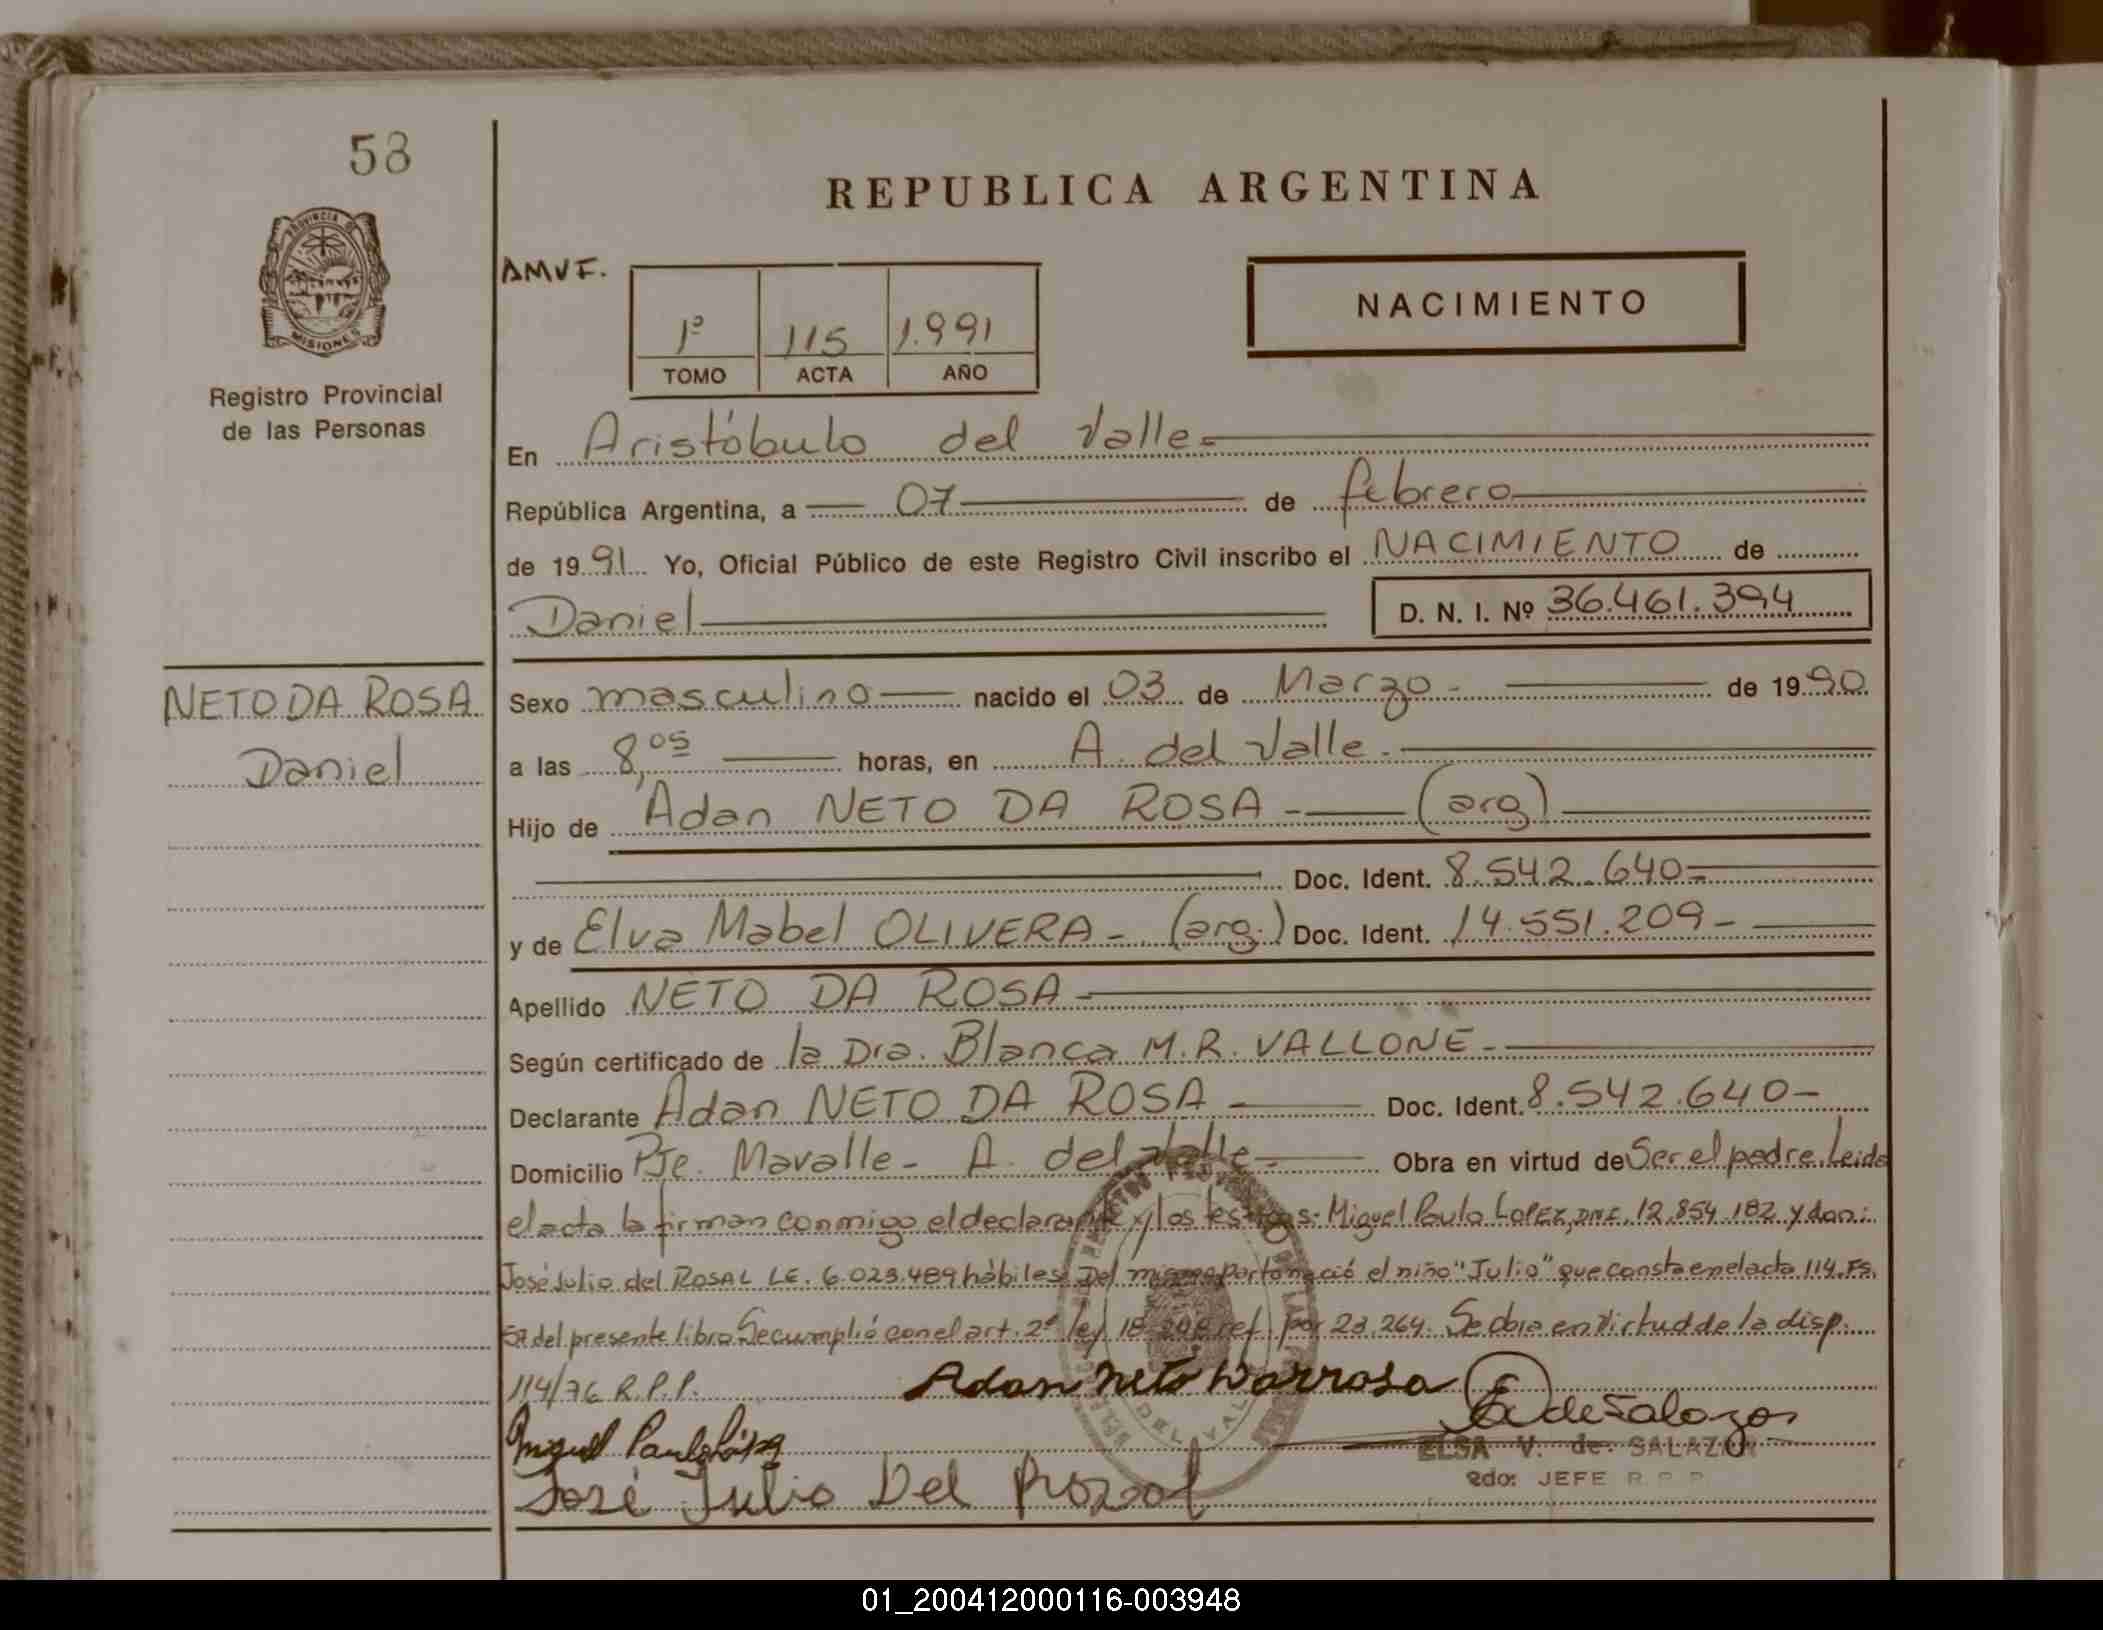 58
REPUBLICA ARGENTINA
AMVF.
1º 115 1.991
TOMO ACTA AÑO
NACIMIENTO
PROVINCIA DE
MISIONES
Registro Provincial
de las Personas
En Aristóbulo del Valle
República Argentina, a 07 de febrero
de 1991 Yo, Oficial Público de este Registro Civil inscribo el NACIMIENTO de
Daniel D. N. I. Nº 36.461.394
NETO DA ROSA
Daniel
Sexo masculino nacido el 03 de Marzo - de 1990
a las 8,05 horas, en A. del Valle.
Hijo de Adan NETO DA ROSA - (arg)
Doc. Ident. 8.542.640=
y de Elva Mabel OLIVERA - (arg.) Doc. Ident. 14.551.209-
Apellido NETO DA ROSA -
Según certificado de la Dra. Blanca M.R. VALLONE -
Declarante Adan NETO DA ROSA - Doc. Ident. 8.542.640-
Domicilio Pje. Mavalle - A. del Valle - Obra en virtud de Ser el padre. Leida
el acta la firman conmigo el declarante y los testigos: Miguel Paulo LOPEZ, DNI. 12.854.182 y don:
José Julio del ROSAL L.E. 6.023.489 hábiles. Del mismo parto nació el niño "Julio" que consta en el acta 114. Fs.
57 del presente libro. Se cumplió con el art. 2º ley 18.248 ref. por 23.264. Se obra en virtud de la disp.
114/76 R.P.P.
Adan neto Darrosa
E de Salazar
Miguel Paulo López
ELSA V. de SALAZAR
José Julio Del Rozal
2do: JEFE R.P.P.
01_200412000116-003948